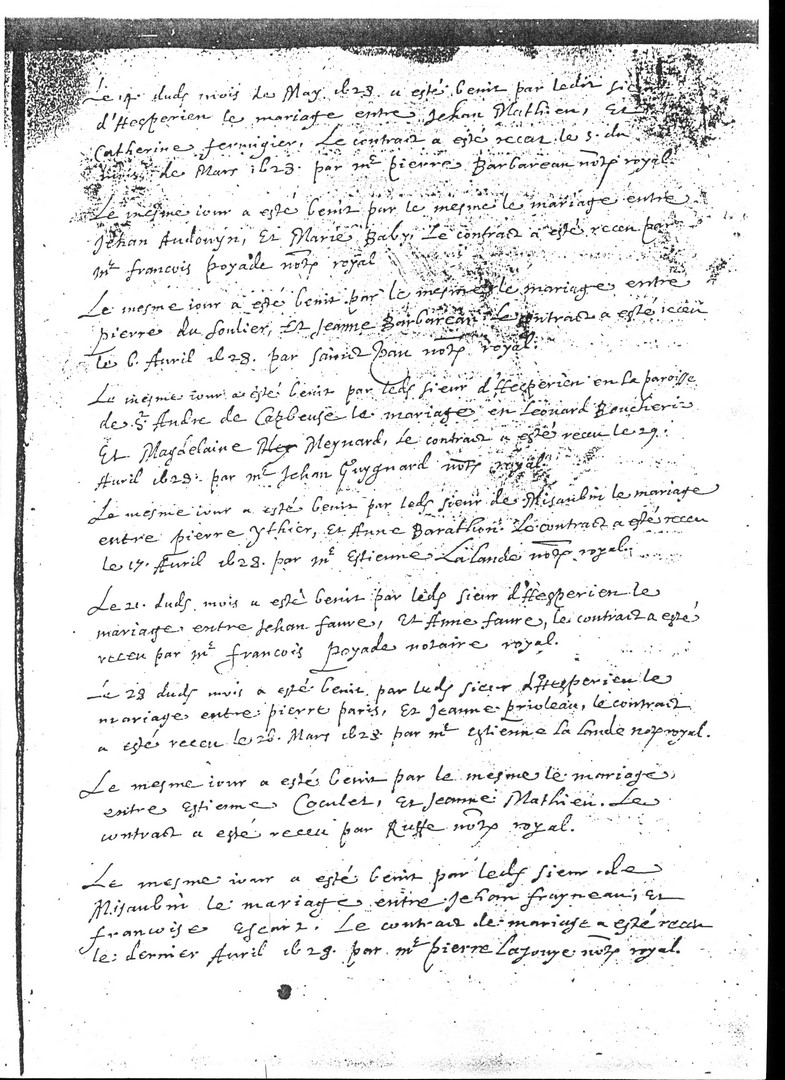 Le 14 duds mois de May 1628. a esté benit par ledit sieur
d'Hesperien le mariage entre Jehan Mathieu, Et
Catherine fermigier. Le contract a esté receu le 5. du
mois de Mars 1628. par mᵉ pierre Barbareau notʳᵉ royal.
Le mesme iour a esté benit par le mesme le mariage entre
Jehan Audouyn, Et Marie Baby. Le contract a esté receu par
mᵉ francois poyade notʳᵉ royal
Le mesme iour a esté benit par le mesme le mariage entre
pierre du soulier, Et Jeanne Barbareau Le contract a esté receu
le 6. Auril 1628. par notʳᵉ royal.
Le mesme iour a esté benit par leds sieur d'Hesperien en la paroisse
de Sᵗ Andre de le mariage en Leonard
Et Magdelaine Meynard, Le contract a esté receu le 29.
Auril 1628. par mᵉ Jehan Guygnard notʳᵉ royal
Le mesme iour a esté benit par leds sieur de Misaubin le mariage
entre pierre ythier, Et Anne Barathon. Le contract a esté receu
le 17. Auril 1628. par mᵉ Estienne La lande notʳᵉ royal.
Le 21. duds mois a esté benit par leds sieur d'Hesperien le
mariage entre Jehan faure, Et Anne faure, le contract a esté
receu par mᵉ francois poyade notaire royal.
Le 28 duds mois a esté benit par leds sieur d'Hesperien le
mariage entre pierre paris, Et Jeanne prioleau, le contract
a esté receu le 26. Mars 1628 par mᵉ estienne la lande notʳᵉ royal.
Le mesme iour a esté benit par le mesme le mariage
entre Estienne Coculet, Et Jeanne Mathieu. Le
contract a esté receu par Ruffe notʳᵉ royal.
Le mesme iour a esté benit par leds sieur de
Misaubin le mariage entre Jehan frayneau, Et
francoise Escart. Le contract de mariage a esté receu
le dernier Auril 1628. par mᵉ pierre Lajouye notʳᵉ royal.